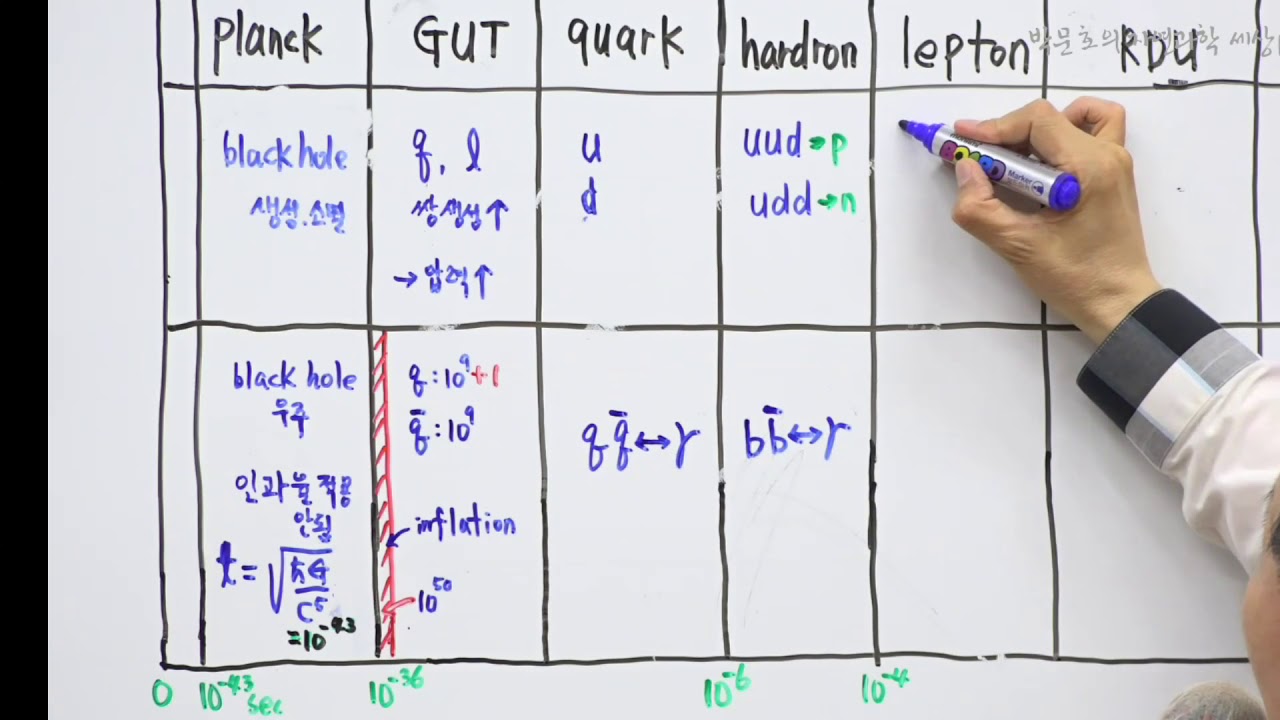 planck GUT quark hardron lepton RDU
박문호의 자연과학 세상
blackhole
생성.소멸
q, l
쌍생성↑
→압력↑
u
d
uud→p
udd→n
Marker
black hole
우주
인과율 적용
안됨
t=√ħG/C⁵
=10⁻⁴³
q:10⁹+1
q̄:10⁹
inflation
10⁵⁰
qq̄↔γ
bb̄↔γ
0 10⁻⁴³sec 10⁻³⁶ 10⁻⁶ 10⁻⁴